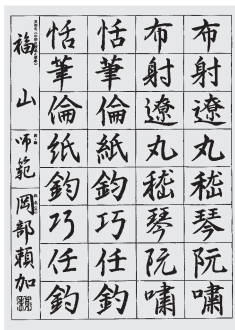 布射遼丸嵇琴阮嘯
布射遼丸嵇琴阮嘯
恬筆倫紙鈞巧任釣
恬筆倫紙鈞巧任釣
福山 師範 岡部頼加